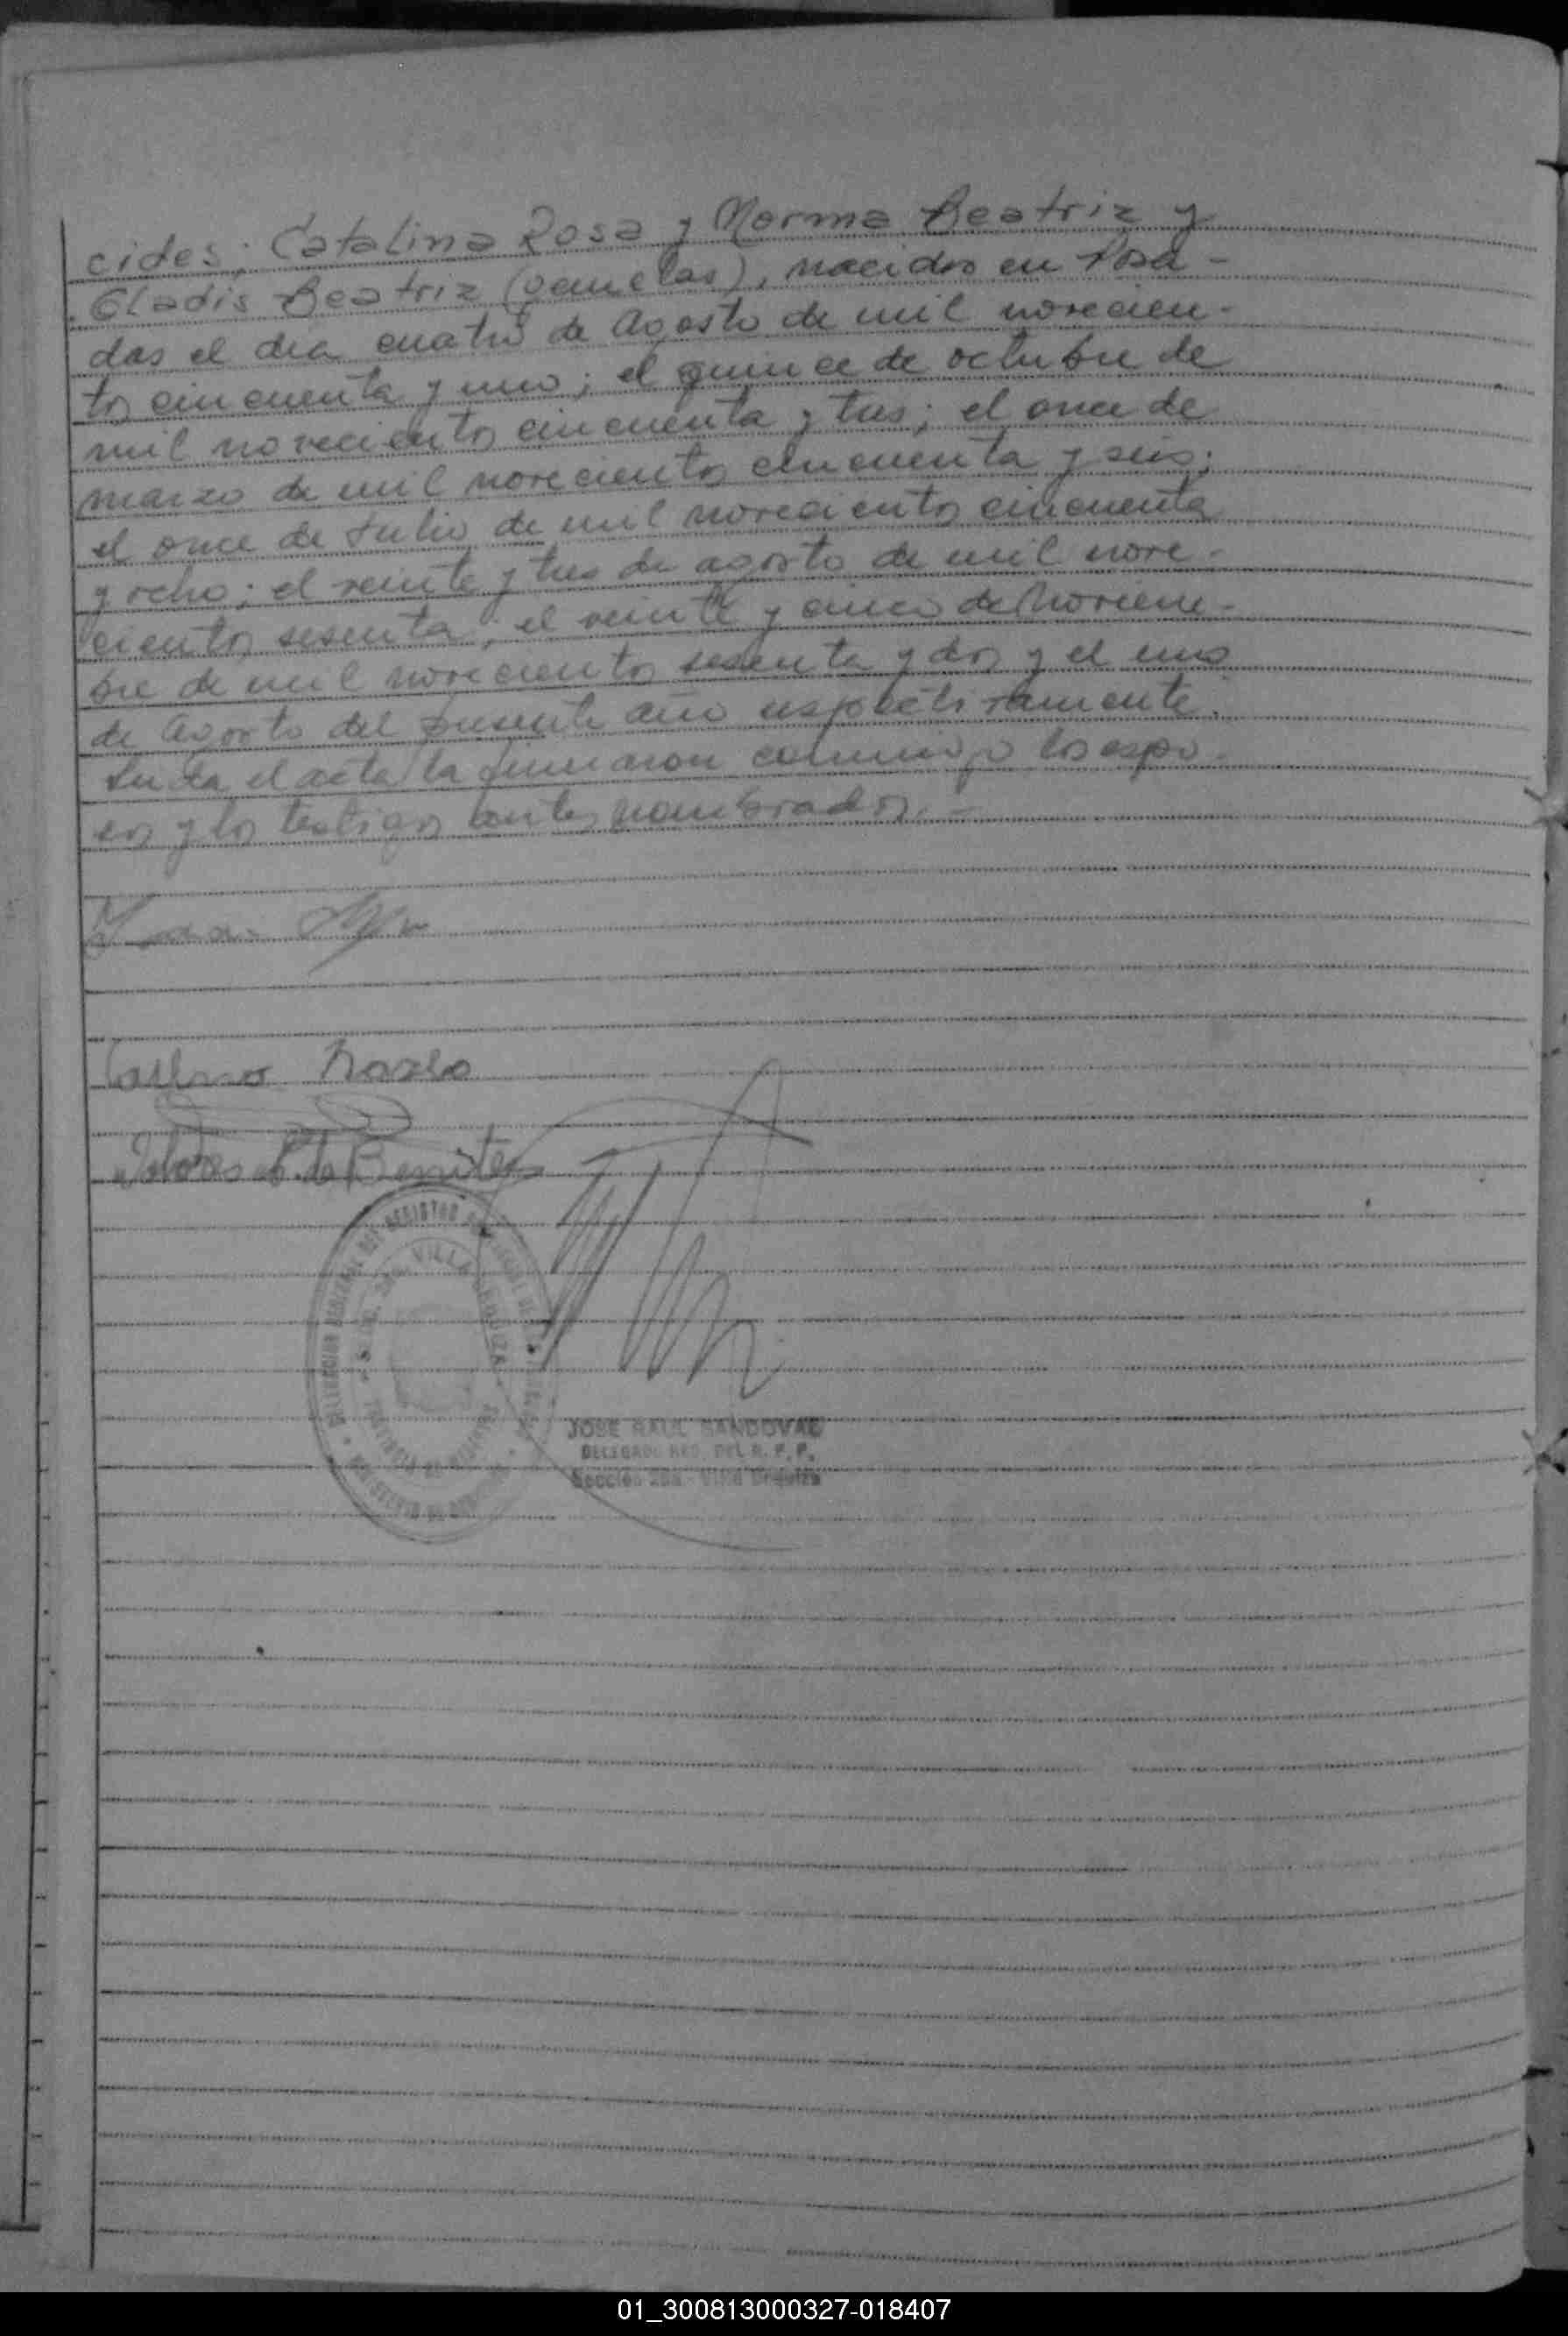 cides; Catalina Rosa y Norma Beatriz y
Gladis Beatriz (gemelas), nacidos en Posa-
das el dia cuatro de Agosto de mil novecien-
tos cincuenta y uno; el quince de octubre de
mil novecientos cincuenta y tres; el once de
marzo de mil novecientos cincuenta y seis;
el once de Julio de mil novecientos cincuenta
y ocho; el veinte y tres de agosto de mil nove-
cientos sesenta; el veinte y cinco de Noviem-
bre de mil novecientos sesenta y dos y el uno
de Agosto del presente año respectivamente.
Leida el acta la firmaron conmigo los espo-
sos y los testigos antes nombrados.-
Dolores de Benitez
REGISTRO
VILLA URQUIZA
JOSE RAUL SANDOVAL
DELEGADO REG. DEL R. P. P.
Sección 28a - Villa Urquiza
01_300813000327-018407